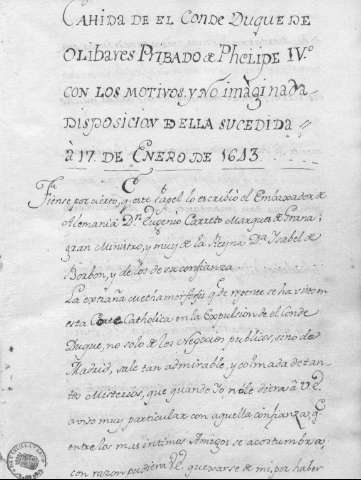 CAHIDA DE EL CONDE DUQUE DE
OLIBARES PRIBADO de PHELIPE IV.º
CON LOS MOTIVOS, y No imaginada
DISPOSICION DELLA SUCEDIDA
à 17 DE ENERO DE 1643
Tiense por cierto, q este papel lo escribió el Embaxador de
Alemania Dn. Eugenio Carreto Marques de Grana;
gran Ministro, y muy de la Reyna Dª. Isabel de
Borbon, y de los de su confianza
La extraña Methamorfosis q de repente se ha visto en
esta Corte Catholica en la Expulsion de el Conde
Duque, no solo de los Negocios publicos, sino de
Madrid, sale tan admirable, y colmada de tan-
tos Misterios, que quando Yo no le diera à V.E.
aviso muy particular con aquella confianza, q
entre los mas intimos Amigos se acostumbra;
con razon pudiera V.E. quexarse de mi, por haber